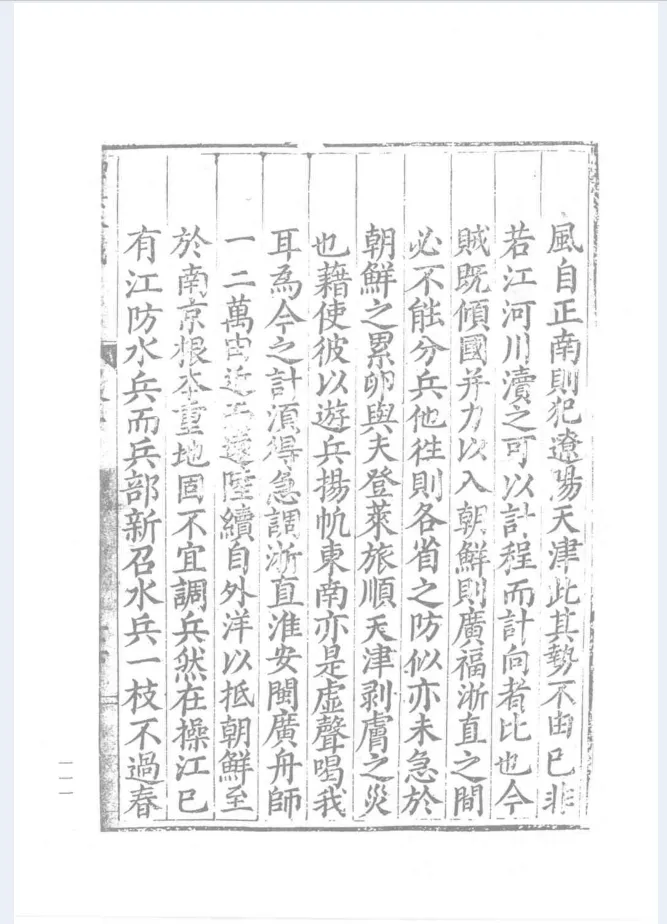 風自正南則犯遼陽天津此其勢不由已非
若江河川瀆之可以計程而計向者比也今
賊既傾國并力以入朝鮮則廣福浙直之間
必不能分兵他徃則各省之防似亦未急於
朝鮮之累卵與夫登萊旅順天津剥膚之災
也藉使彼以遊兵揚帆東南亦是虛聲喝我
耳爲今之計湏得急調浙直淮安閩廣舟師
一二萬由近而遠陸續自外洋以抵朝鮮至
於南京根本重地固不宜調兵然在操江已
有江防水兵而兵部新召水兵一枝不過春
一一一